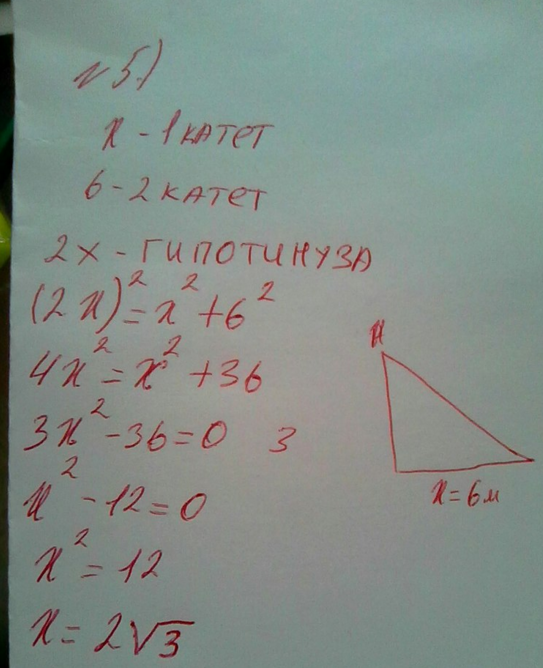 №5.)
х - 1 катет
6 - 2 катет
2х - гипотинуза
(2х)² = х² + 6²
4х² = х² + 36
3х² - 36 = 0 3
х² - 12 = 0
х² = 12
х = 2√3
х = 6м